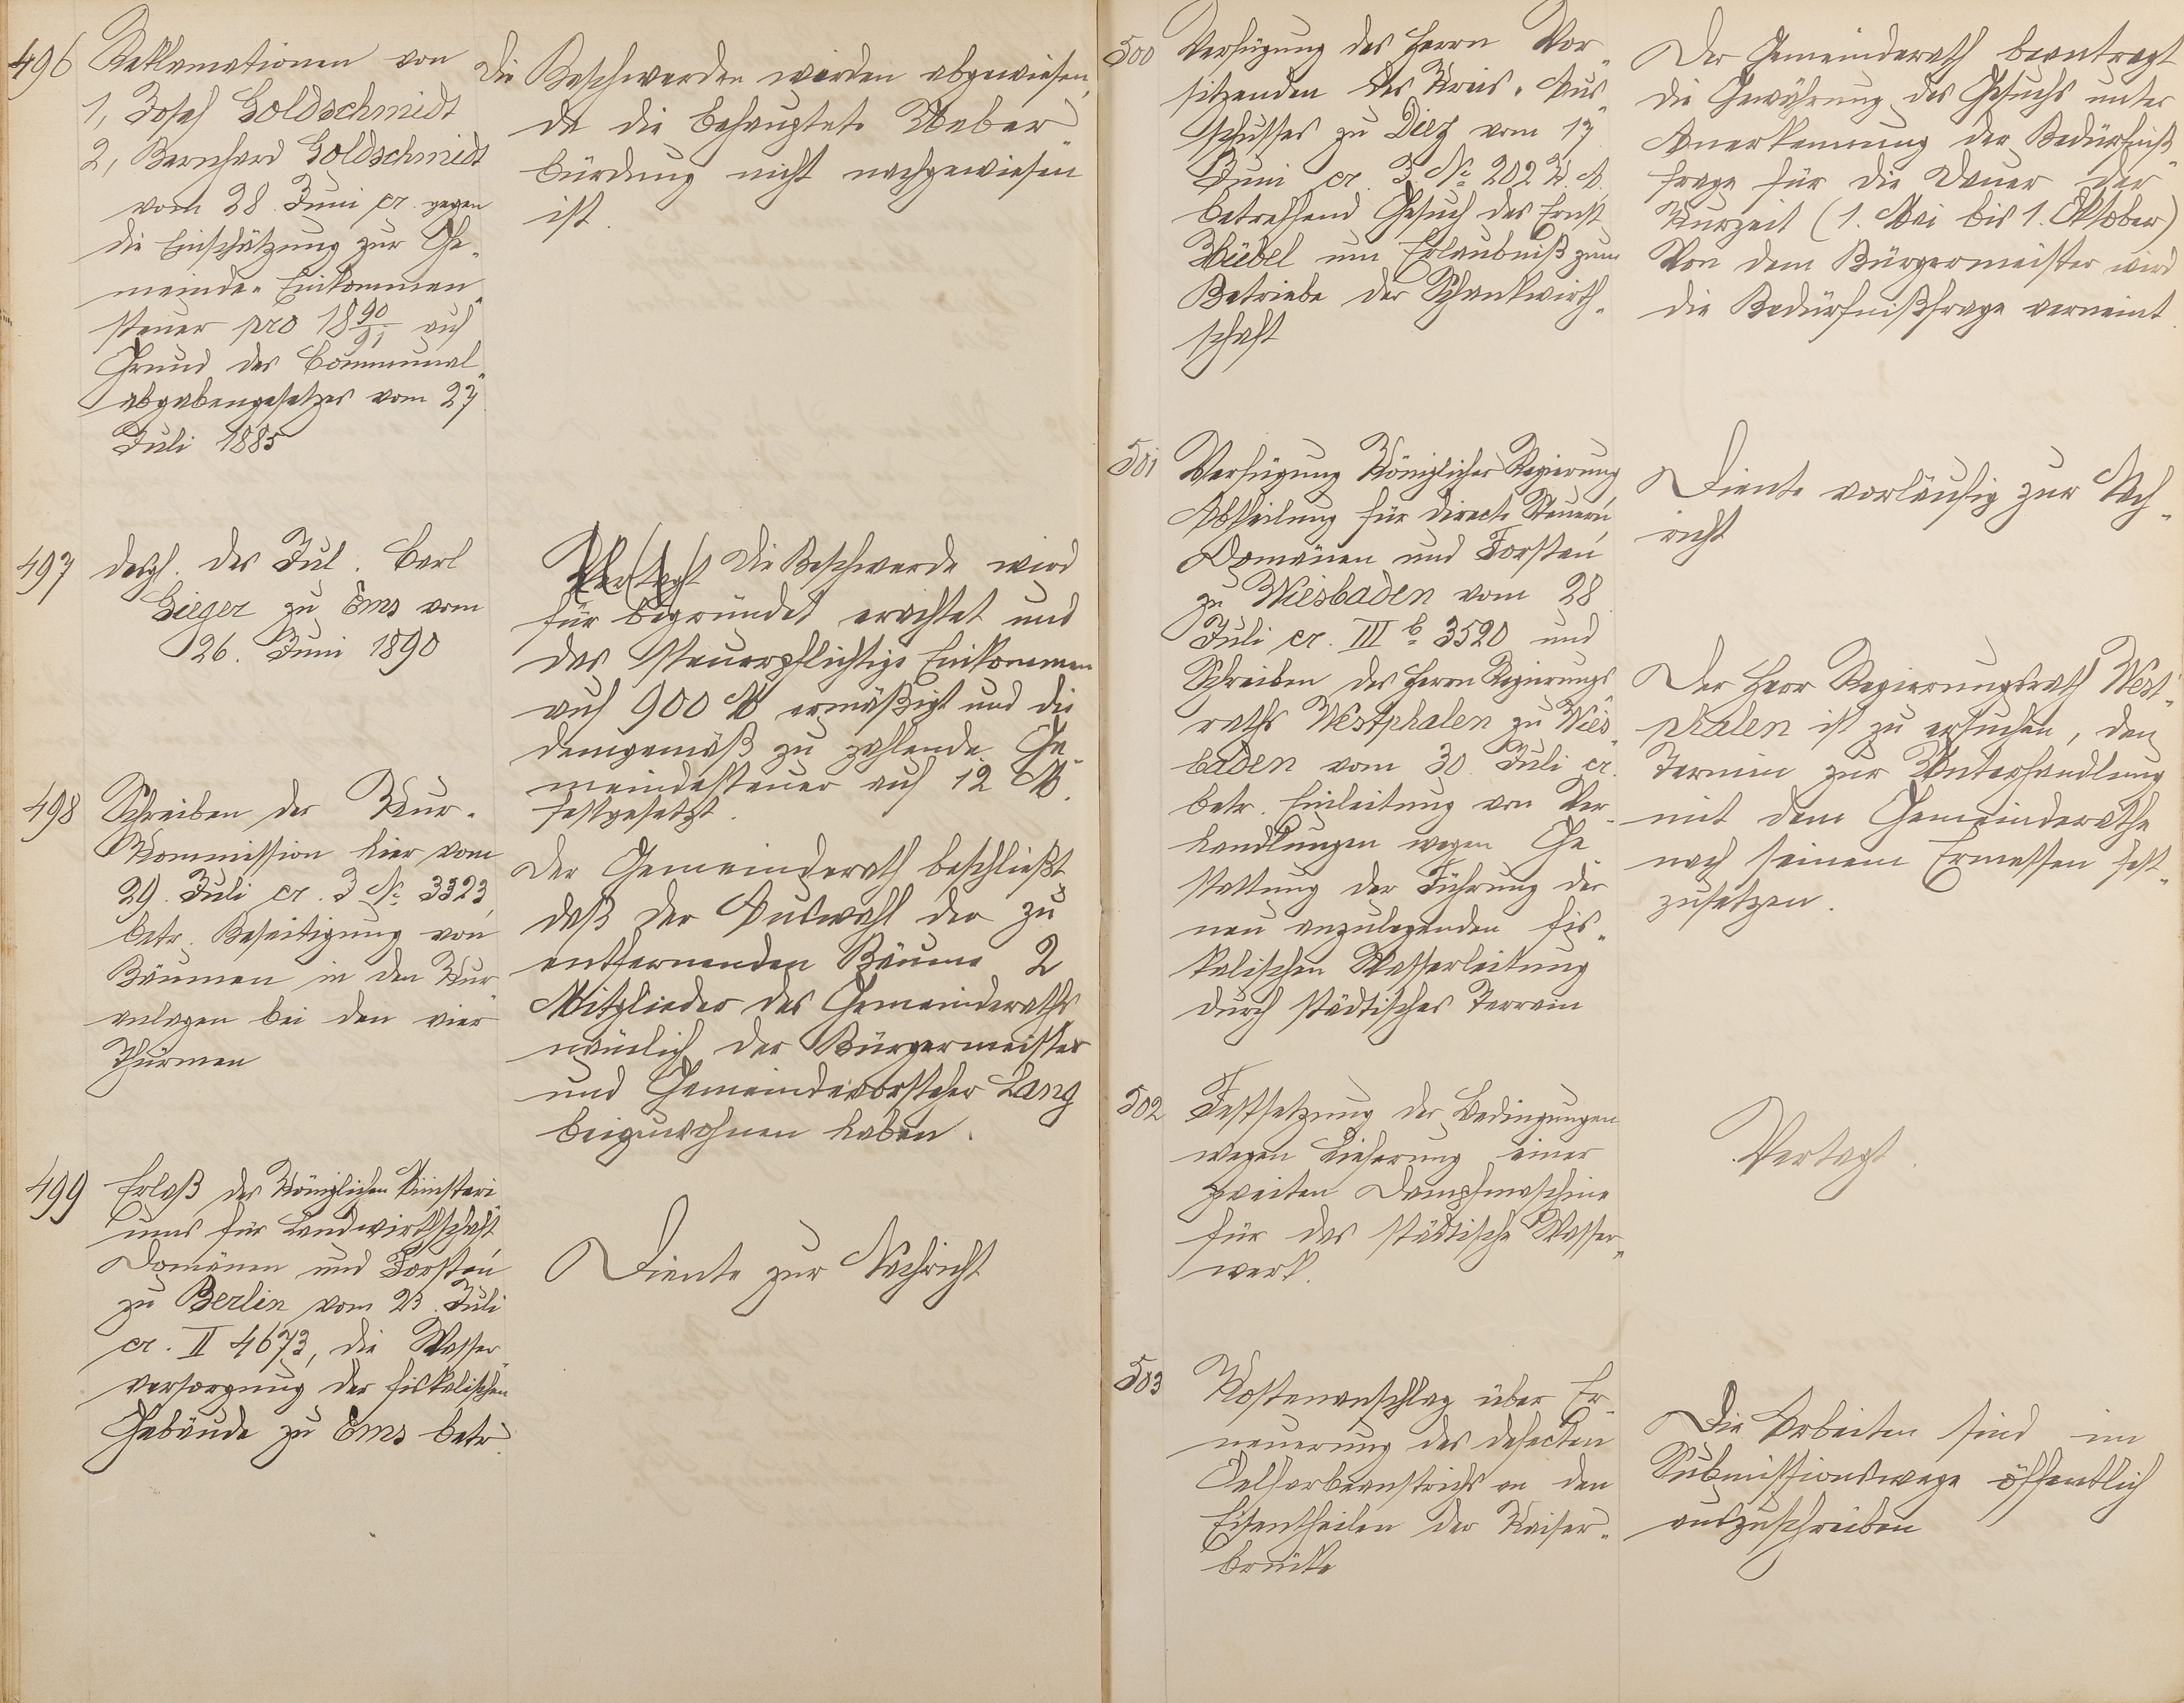 496
Reklamationen von
1, Josef Goldschmidt
2, Bernhard Goldschmidt
vom 28. Juni cr. gegen
die Einschätzung zur Ge„
meinde„Einkommen„
steuer pro 1890/91 auf
Grund des Communal„
abgabengesetzes vom 27
Juli 1885
Die Beschwerden werden abgewiesen,
da die behauptete Ueber„
bürdung nicht nachgewiesen
ist.
497
desgl. des Jul. Carl
Gieger zu Ems vom
26. Juni 1890
Vertagt Die Beschwerde wird
für begründet erachtet und
das steuerpflichtige Einkommen
auf 900 M ermäßigt und die
demgemäß zu zahlende Ge„
meindesteuer auf 12 M.
festgesetzt.
498
Schreiben der Kur„
Kommission hier vom
29. Juli cr. J. No. 3323,
betr. Beseitigung von
Bäumen in den Kur„
anlagen bei den vier
Thürmen
Der Gemeinderath beschließt
daß der Auswahl der zu
entfernenden Bäume 2
Mitglieder des Gemeinderaths
nämlich der Bürgermeister
und Gemeindevorsteher Lang
beizuwohnen haben.
499
Erlaß des Königlichen Ministeri„
ums für Landwirthschaft
Domänen und Forsten
zu Berlin vom 23. Juli
cr. II 4673, die Wasser„
versorgung der fiskalischen
Gebäude zu Ems betr.
Diente zur Nachricht
500
Verfügung des Herrn Vor„
sitzenden des Kreis„Aus„
schusses zu Diez vom 17
Juni cr. J. No. 202 K. A.
betreffend Gesuch des Ernst
Hübel um Erlaubniß zum
Betriebe der Schankwirth„
schaft
Der Gemeinderath beantragt
die Gewährung des Gesuchs unter
Anerkennung der Bedürfniß„
frage für die Dauer der
Kurzeit (1. Mai bis 1. Oktober)
Von dem Bürgermeister wird
die Bedürfnißfrage verneint.
501
Verfügung Königlicher Regierung
Abtheilung für directe Steuern,
Domänen und Forsten,
zu Wiesbaden vom 28
Juli cr. III b 3520 und
Schreiben des Herrn Regierungs„
raths Westphalen zu Wies„
baden vom 30. Juli cr.
betr. Einleitung von Ver„
handlungen wegen Ge„
stattung der Führung der
neu anzulegenden fis„
kalischen Wasserleitung
durch städtisches Terrain
Diente vorläufig zur Nach„
richt
Der Herr Regierungsrath West„
phalen ist zu ersuchen, den
Termin zur Unterhandlung
mit dem Gemeinderathe
nach seinem Ermessen fest„
zusetzen.
502
Festsetzung der Bedingungen
wegen Lieferung einer
zweiten Dampfmaschine
für das städtische Wasser„
werk.
Vertagt.
503
Kostenanschlag über Er„
neuerung des defecten
Oelfarbeanstrichs an den
Eisentheilen der Kaiser„
brücke
Die Arbeiten sind im
Submissionswege öffentlich
auszuschreiben